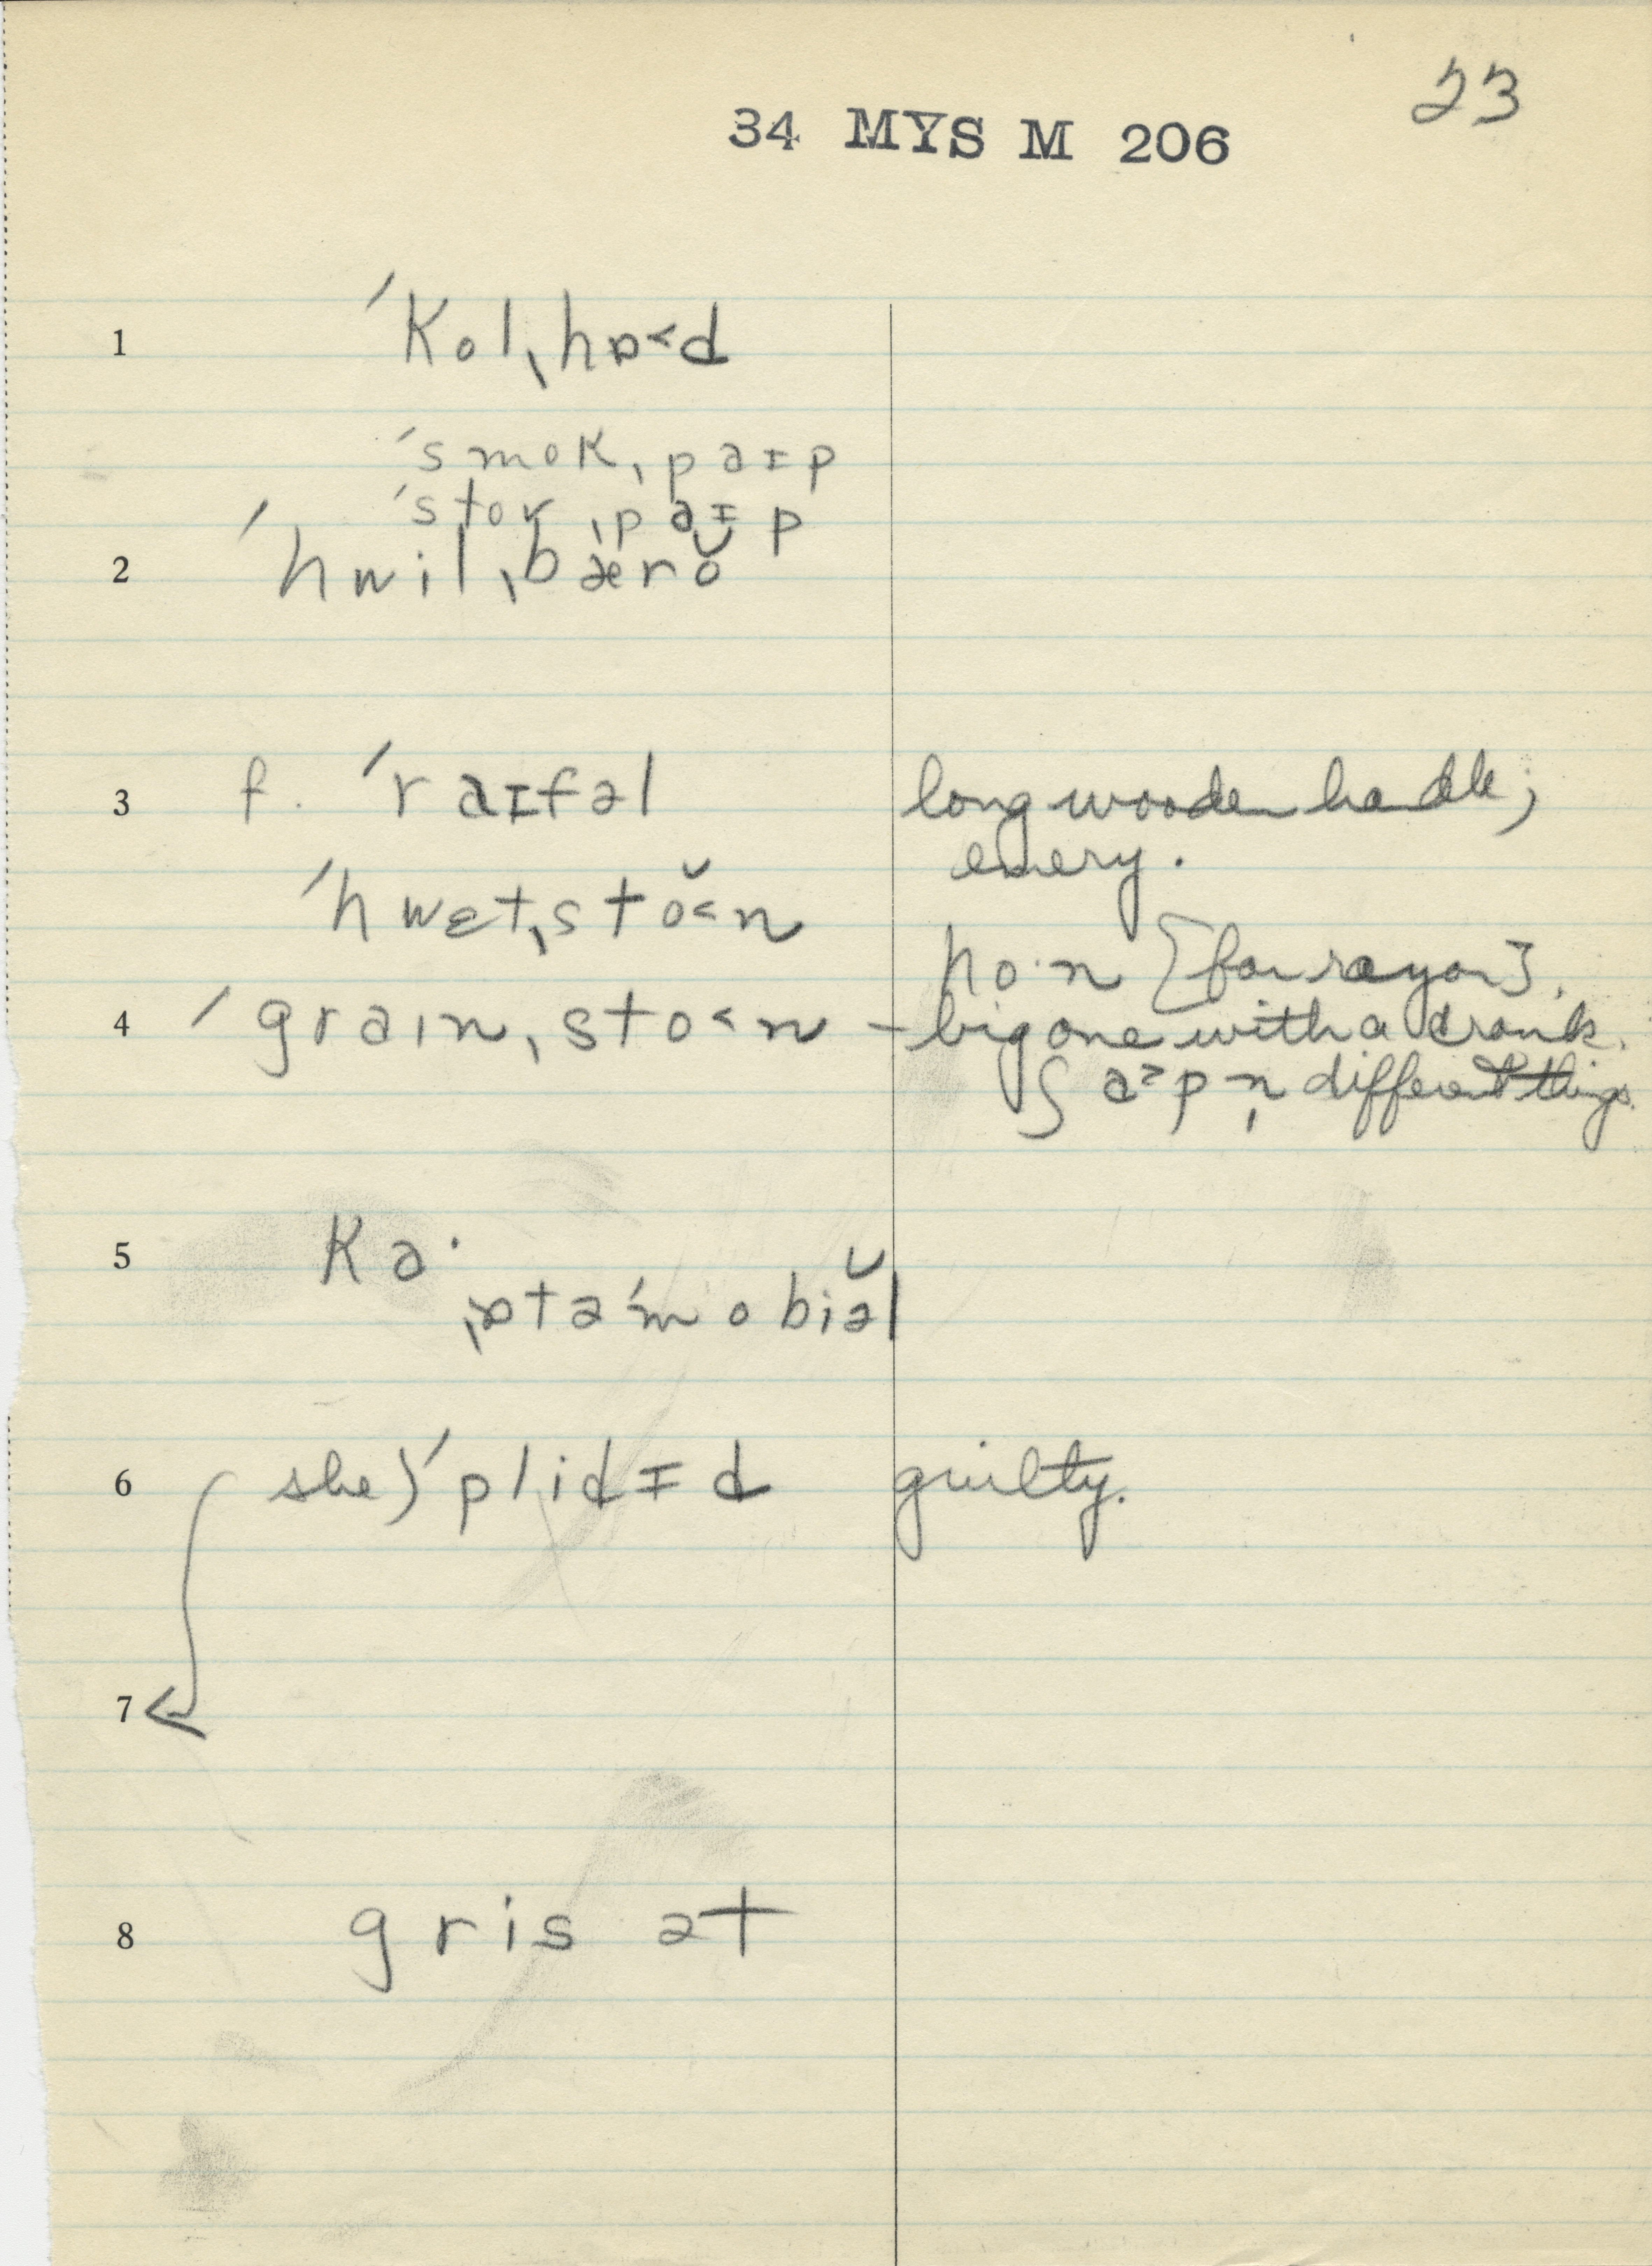 23
34 MYS M 206
1 ˈkolˌhɒ˂d
ˈsmokˌpaɪp
ˈstovˌpaɪp
2 ˈhwilˌbærŏ
3 f. ˈraɪfəl long wooden handle;
emery.
ˈhwɛtˌstŏ˂n
ho·n [for rayor].
4 ˈgraınˌsto˂n – big one with a crank.
ʃa˃pn̩ different things.
5 ka·
ˌɒtəˈmobiə̆l
6 she) ˈplidɪd guilty.
7
8 gris ət